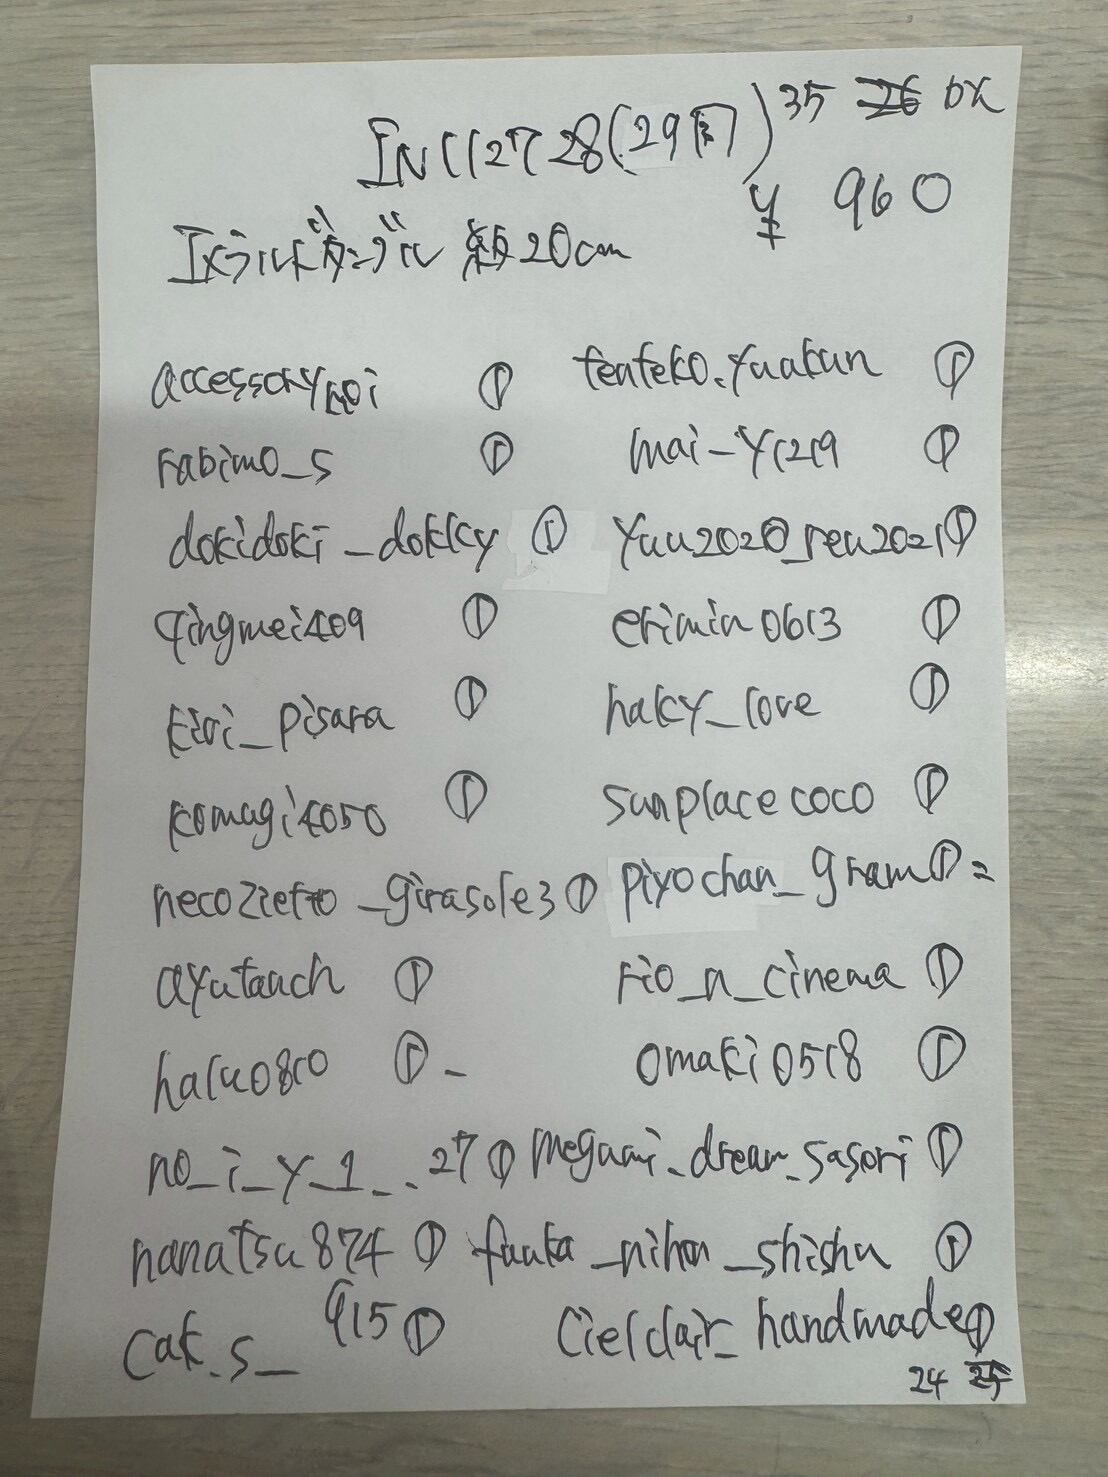 IN1127 28(29同) 35 26 bx
¥ 960
エメラルドタングル 約20cm
accessorykoi ① tenteko.yuakun ①
rabimo_s ① mai-y1219 ①
dokidoki_dokky ① yuu2020_reu2021 ①
qingmei409 ① erimin0613 ①
kivi_pisara ① haky_love ①
komagi4050 ① sunplacecoco ①
necozietto_girasole3 ① piyochan_gram ①=
ayutanch ① rio_n_cinema ①
halu0810 ①- omaki0518 ①
no_i_y_1_.27 ① megumi_dream_sasori ①
nanatsu874 ① fuuka_nihon_shishu ①
cak.s_915 ① Cielclair_handmade ①
24 25